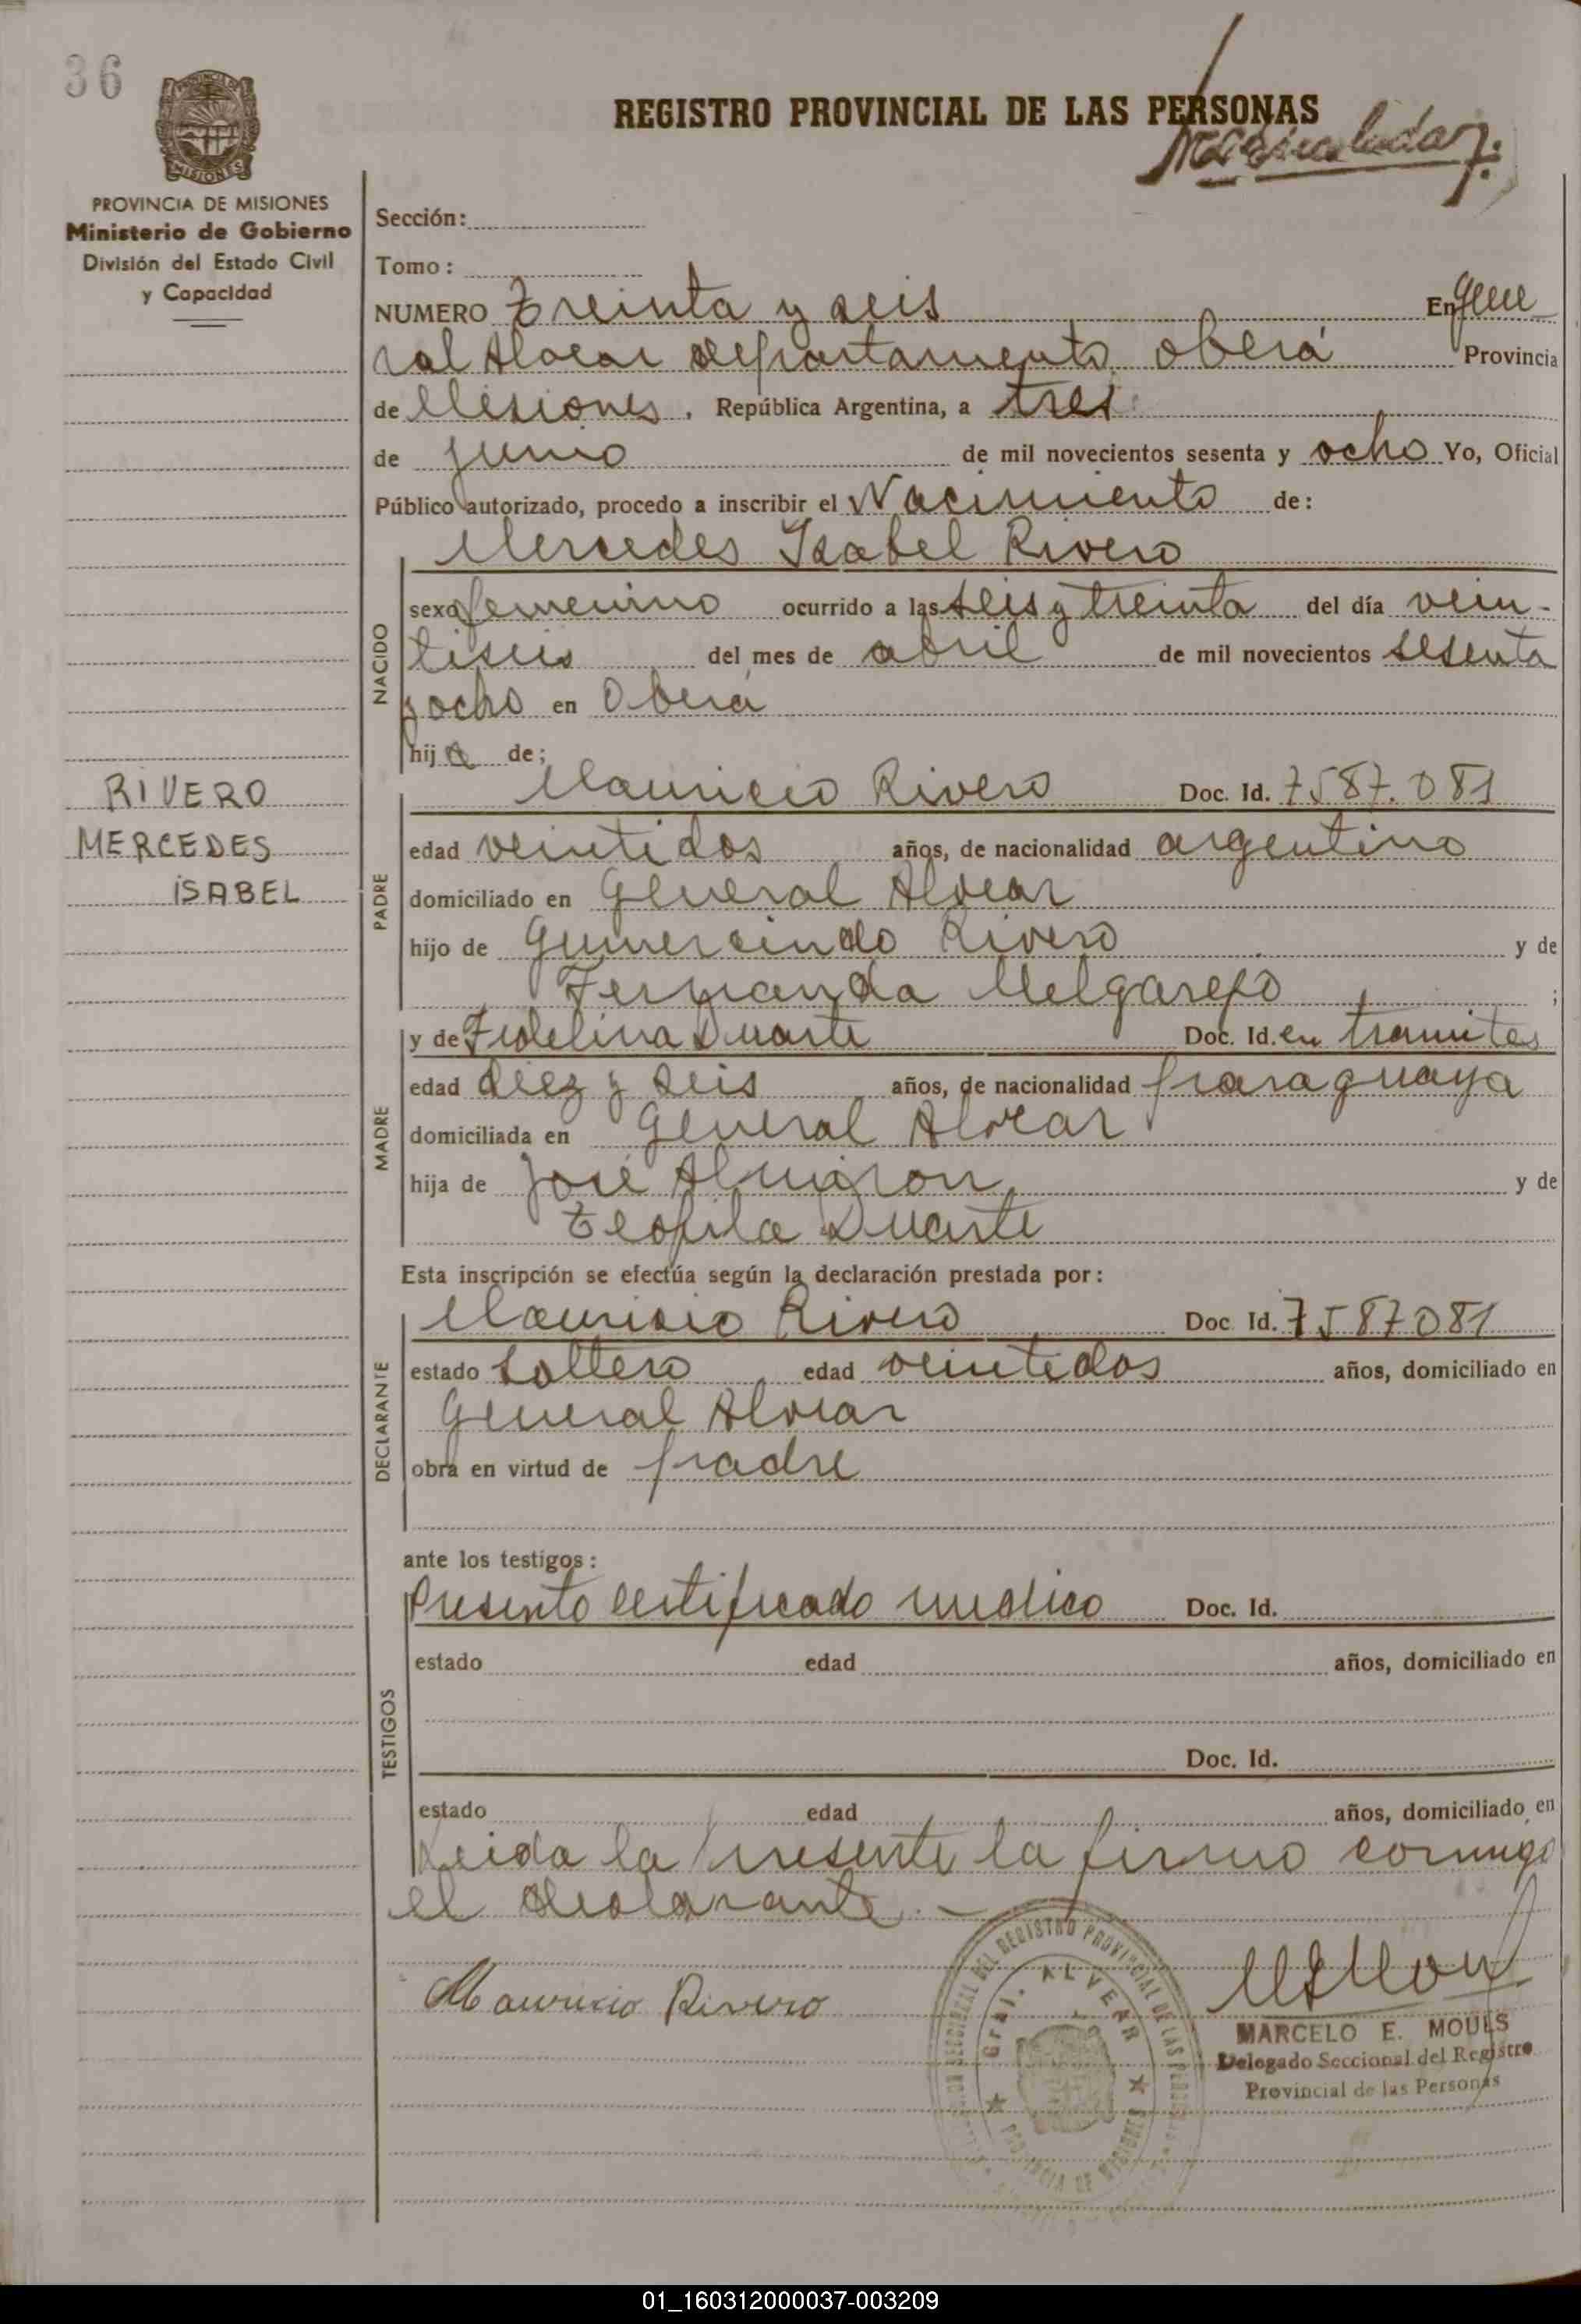 36
REGISTRO PROVINCIAL DE LAS PERSONAS
MISIONES
PROVINCIA DE MISIONES
Ministerio de Gobierno
División del Estado Civil
y Capacidad
Sección:
Tomo:
NUMERO Treinta y seis En Gene
ral Alvear departamento Oberá Provincia
de Misiones, República Argentina, a tres
de junio de mil novecientos sesenta y ocho Yo, Oficial
Público autorizado, procedo a inscribir el Nacimiento de:
Mercedes Isabel Rivero
NACIDO
sexo femenino ocurrido a las seis y treinta del día vein-
tiseis del mes de abril de mil novecientos sesenta
y ocho en Oberá
hija de;
RIVERO
MERCEDES
ISABEL
PADRE
Mauricio Rivero Doc. Id. 7587.081
edad veintidos años, de nacionalidad argentino
domiciliado en General Alvear
hijo de Gumercindo Rivero y de
Fernanda Melgarejo ;
MADRE
y de Fidelina Duarte Doc. Id. en tramites
edad diez y seis años, de nacionalidad paraguaya
domiciliada en General Alvear
hija de José Almiron y de
Teofila Duarte
Esta inscripción se efectúa según la declaración prestada por:
DECLARANTE
Mauricio Rivero Doc. Id. 7587081
estado soltero edad veintidos años, domiciliado en
General Alvear
obra en virtud de padre
ante los testigos:
TESTIGOS
Presento certificado medico Doc. Id.
estado edad años, domiciliado en
Doc. Id.
estado edad años, domiciliado en
Leida la presente la firmo conmigo
el declarante.-
Mauricio Rivero
REGISTRO PROVINCIAL DE LAS
Gral. ALVEAR
PROVINCIA DE MISIONES
MARCELO E. MOULS
Delegado Seccional del Registro
Provincial de las Personas
01_160312000037-003209